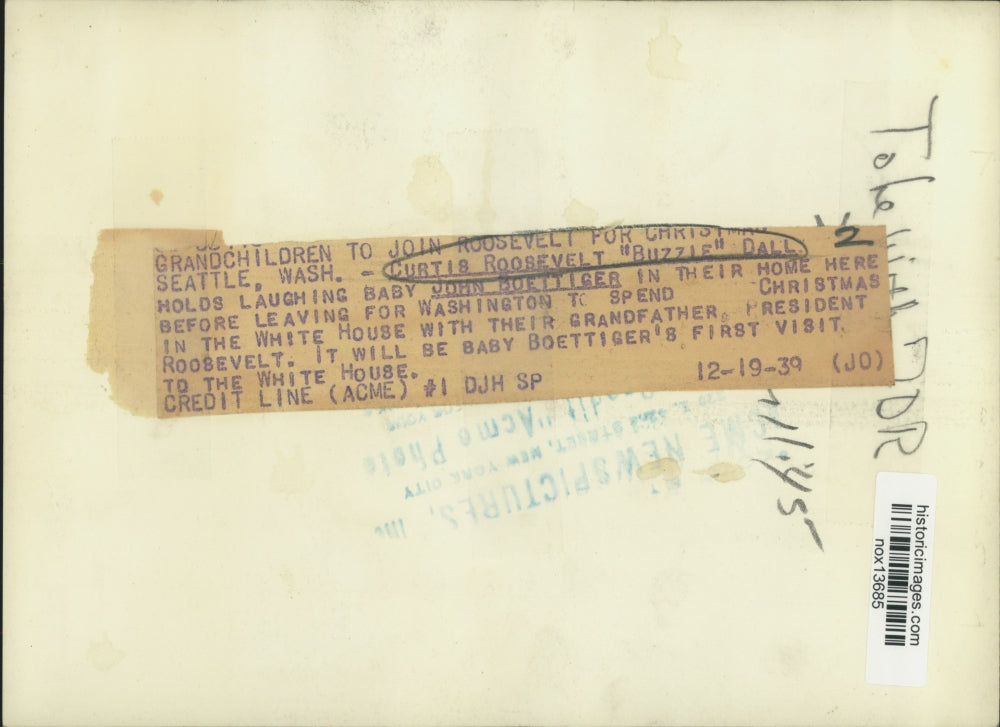 GRANDCHILDREN TO JOIN ROOSEVELT FOR CHRISTMAS
SEATTLE, WASH. - CURTIS ROOSEVELT "BUZZIE" DALL
HOLDS LAUGHING BABY JOHN BOETTIGER IN THEIR HOME HERE
BEFORE LEAVING FOR WASHINGTON TO SPEND CHRISTMAS
IN THE WHITE HOUSE WITH THEIR GRANDFATHER, PRESIDENT
ROOSEVELT. IT WILL BE BABY BOETTIGER'S FIRST VISIT
TO THE WHITE HOUSE.
CREDIT LINE (ACME) #1 DJH SP 12-19-39 (JO)
2
FDR
ACME NEWSPICTURES, Inc.
STREET, NEW YORK CITY
Credit "Acme Photo
historicimages.com
nox13685